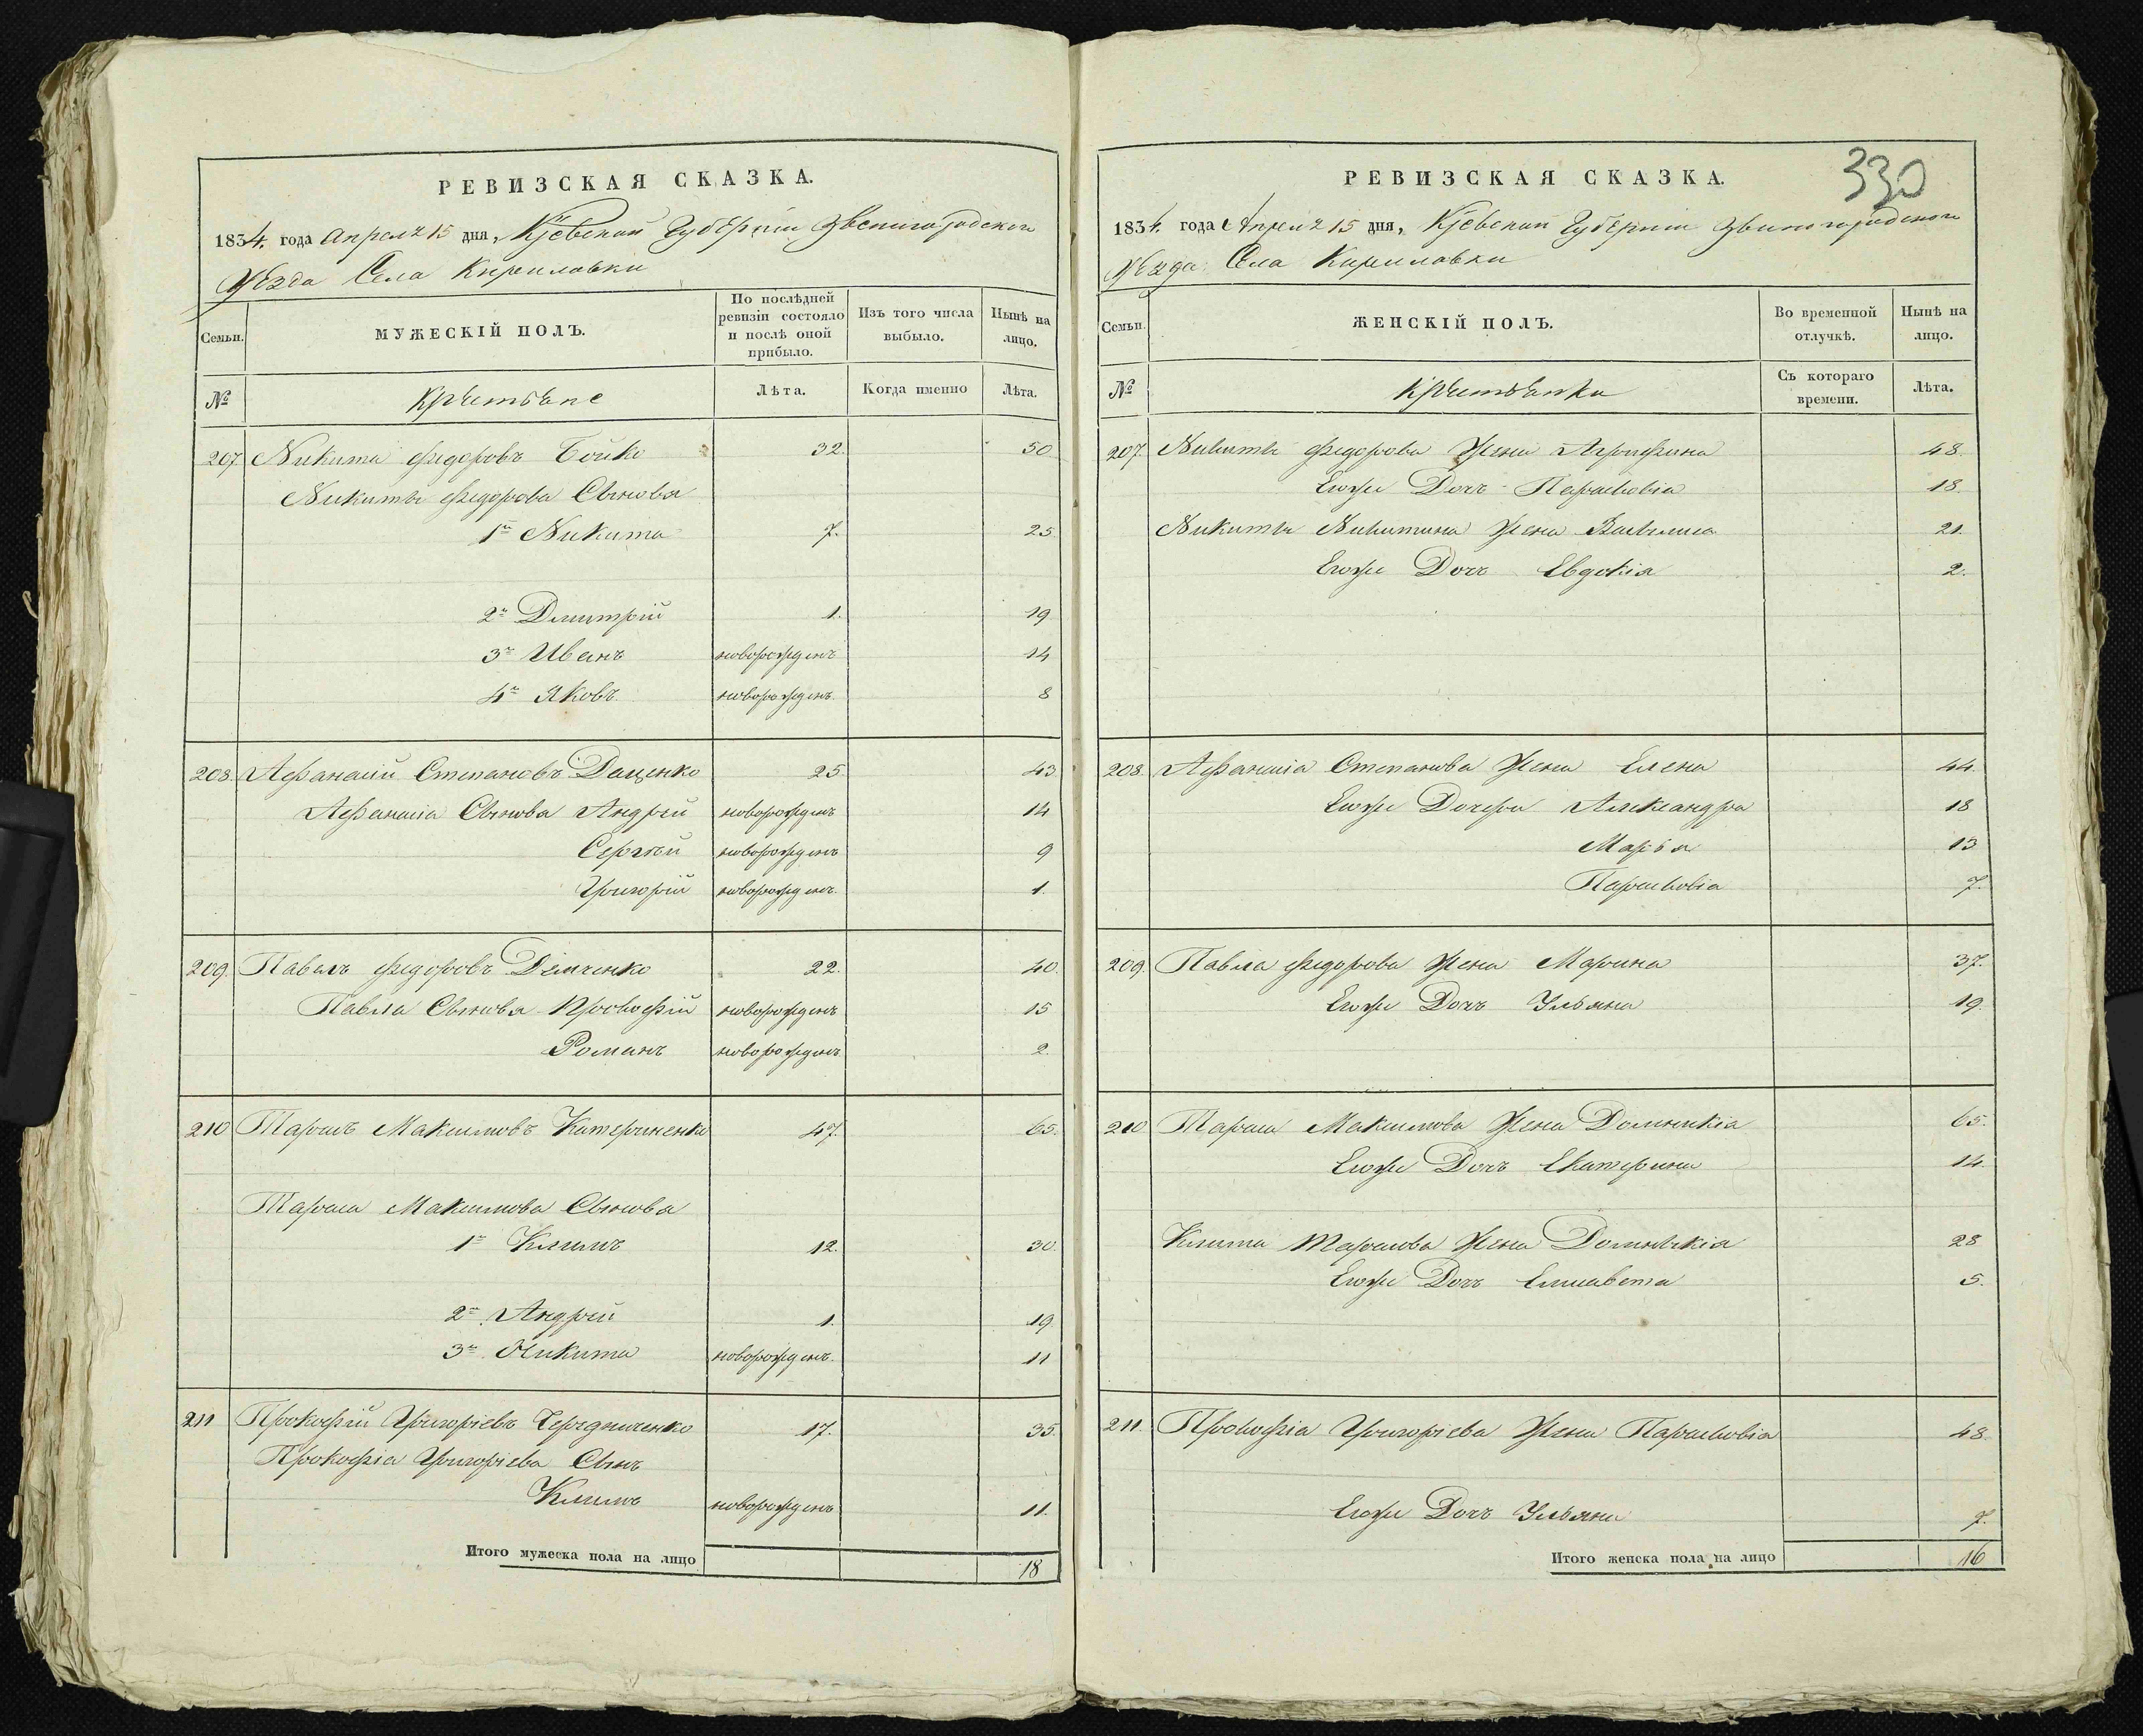 РЕВИЗСКАЯ СКАЗКА.
1834. года Апреля 15 дня, Кіевской Губерніи Звенигородского
Уѣзда Села Кириловки
Семьи.
МУЖЕСКІЙ ПОЛЪ.
По послѣдней ревизіи состояло и послѣ оной прибыло.
Изъ того числа выбыло.
Нынѣ на лицо.
№
Крестьяне
Лѣта.
Когда именно
Лѣта.
207 Никита Федоровъ Бойко 32. 50
Никиты Федорова Сыновья
1й Никита 7. 25.
2й Дмитрій 1. 19
3й Иванъ новорожденъ 14
4й Яковъ новорожденъ. 8
208. Афанасій Степановъ Даценко 25. 43
Афанасія Сыновья Андрей новорожденъ 14
Сергѣй новорожденъ 9
Григорій новорожденъ 1.
209. Павелъ Федоровъ Демченко 22. 40.
Павла Сыновья Прокофій новорожденъ 15
Романъ новорожденъ 2.
210 Тарасъ Максимовъ Катериненко 47. 65.
Тараса Максимова Сыновья
1й Климъ 12. 30.
2й Андрей 1. 19.
3й Никита новорожденъ. 11
211 Прокофій Григоріевъ 17. 35.
Прокофія Григоріева Сынъ
Климъ новорожденъ 11.
Итого мужеска пола на лицо 18
330
РЕВИЗСКАЯ СКАЗКА.
1834. года Апреля 15 дня, Кіевской Губерніи Звенигородского
Уѣзда Села Кириловки
Семьи.
ЖЕНСКІЙ ПОЛЪ.
Во временной отлучкѣ.
Нынѣ на лицо.
№
Крестьянки
Съ котораго времени.
Лѣта.
207. Никиты Федорова Жена Агрипина 48.
Егоже Дочь Парасковія 18.
Никиты Никитина Жена Василиса 21.
Егоже Дочь Евдокія 2.
208. Афанасія Степанова Жена Елена 44.
Егоже Дочери Александра 18
Марья 13
Парасковія 7.
209. Павла Федорова Жена Марина 37.
Егоже Дочь Ульяна 19.
210 Тараса Максимова Жена Домникія 65.
Егоже Дочь Екатерина 14.
Клима Тарасова Жена Домникія 28
Егоже Дочь Елисавета 5.
211. Прокофія Григоріева Жена Парасковія 48.
Егоже Дочь Ульяна 7.
Итого женска пола на лицо 16